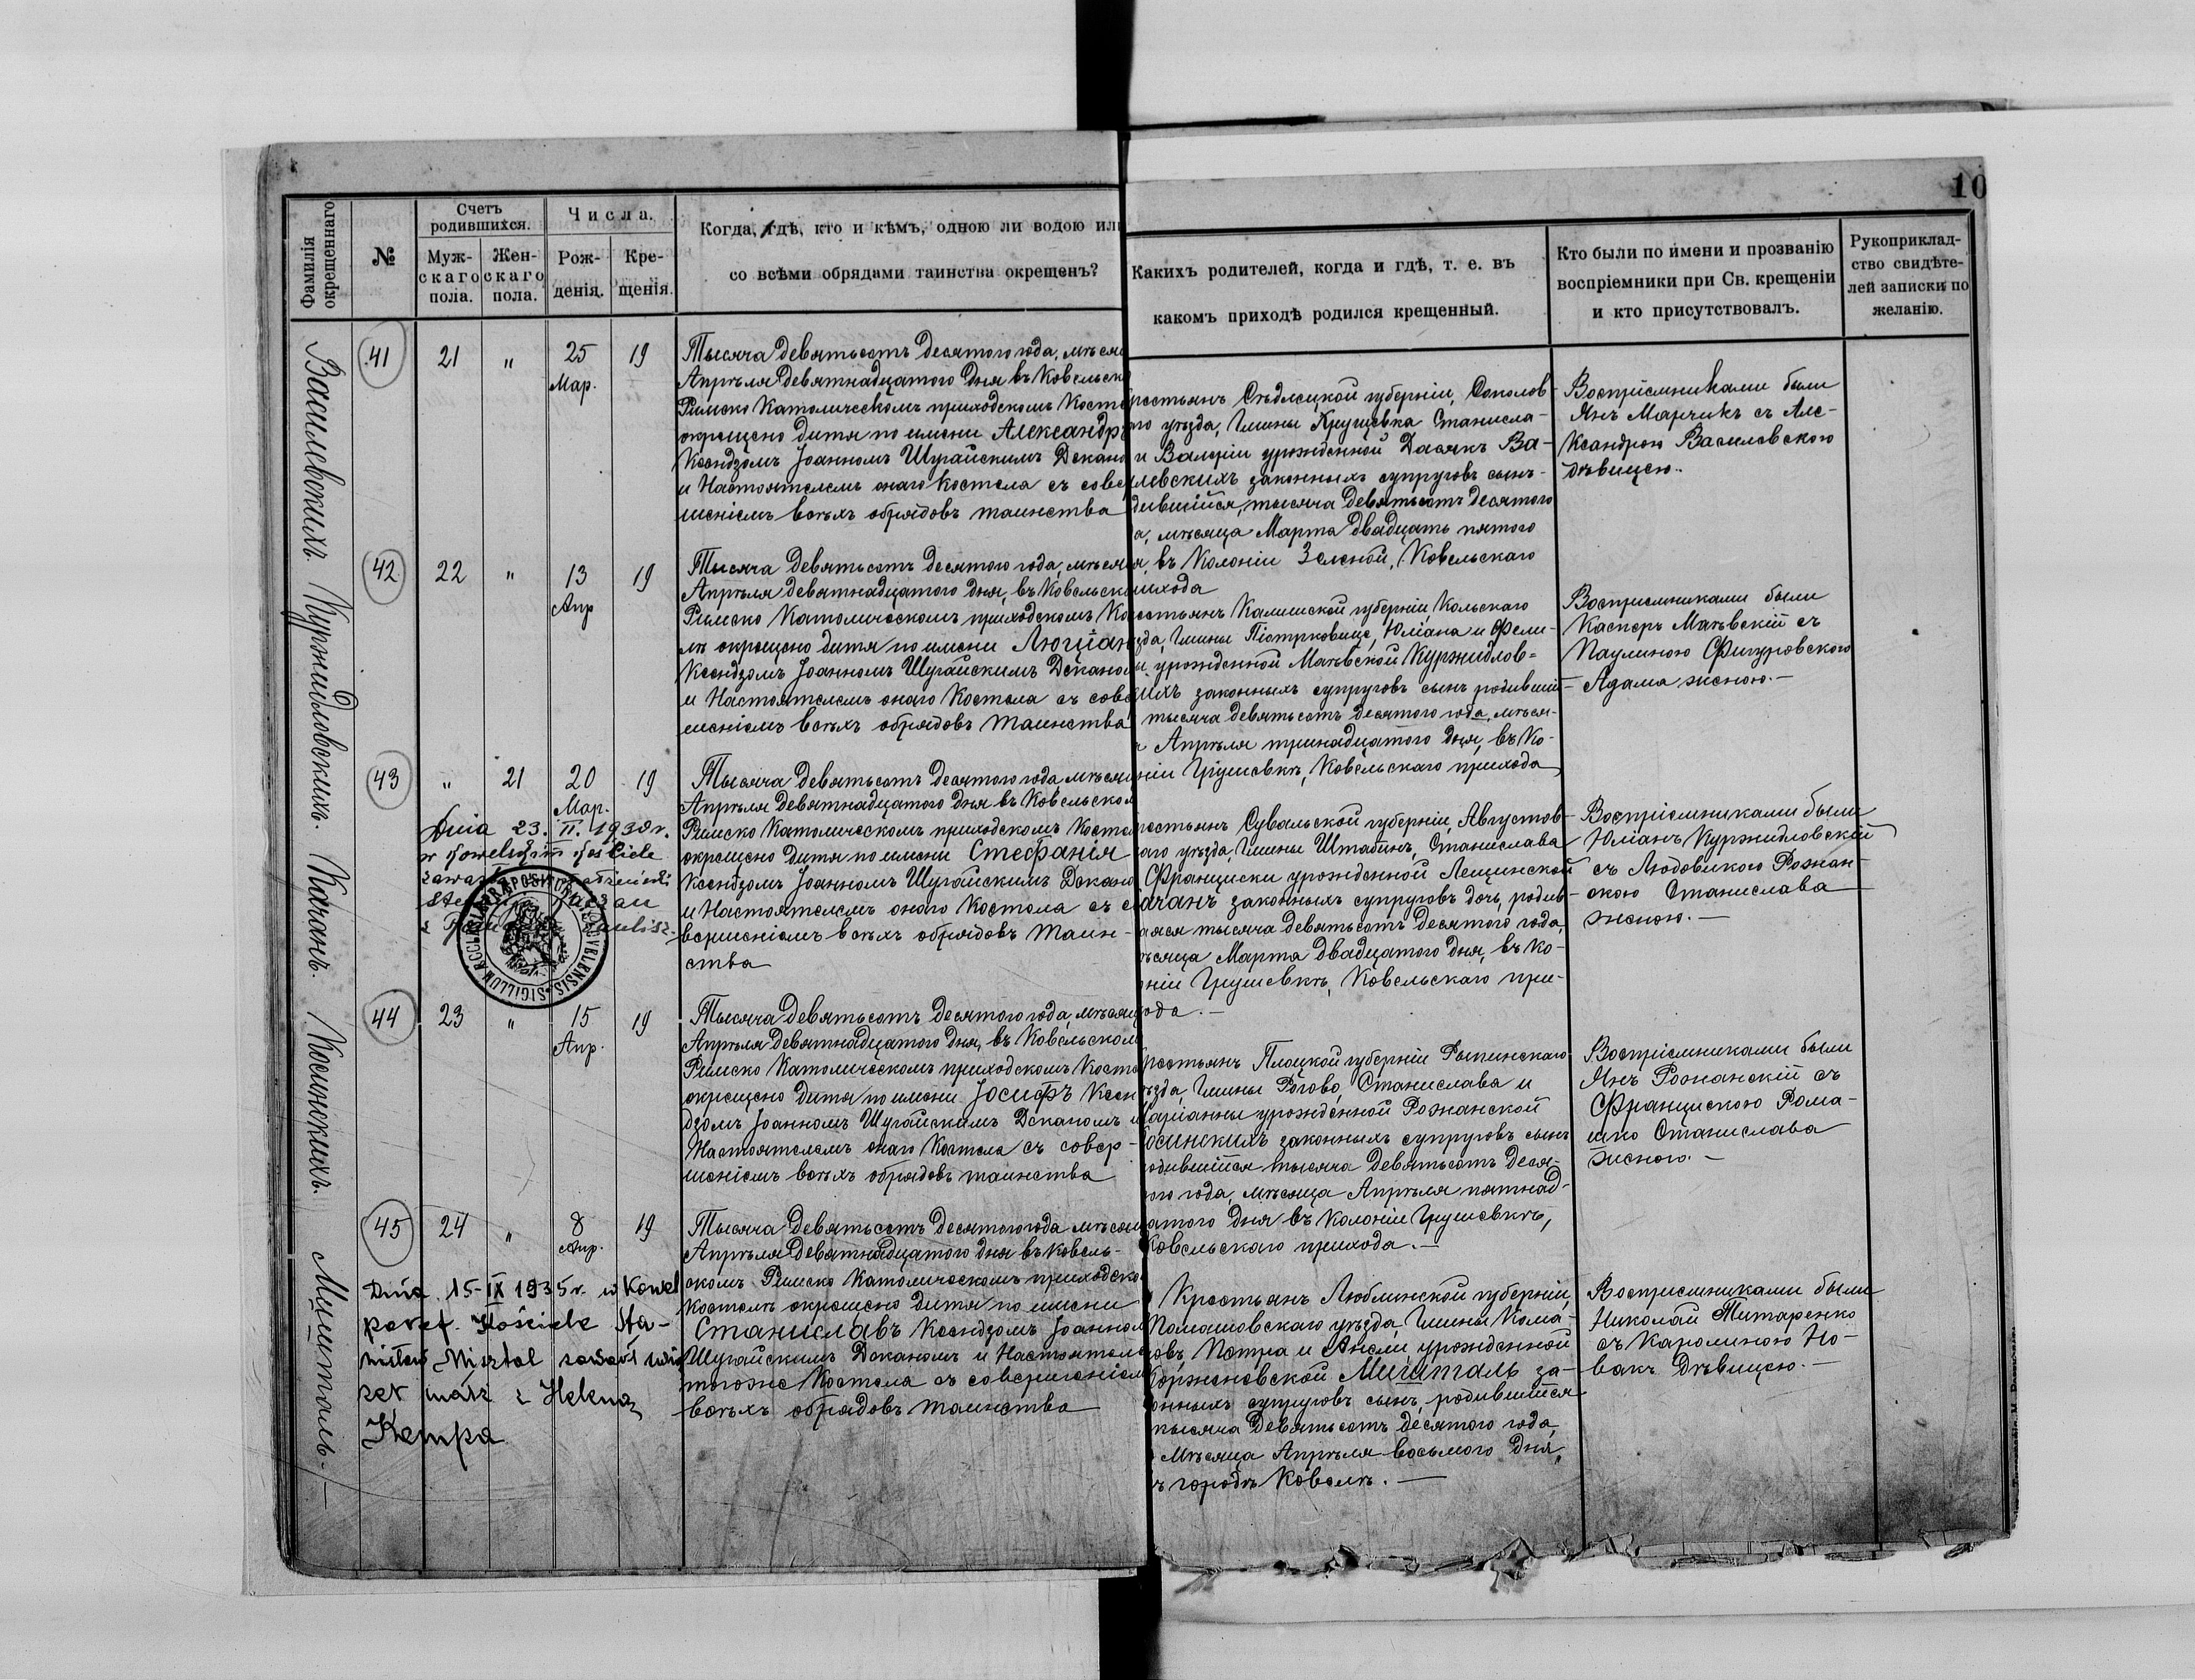 10
Фамилія окрещеннаго
№
Счетъ родившихся.
Муж-скаго пола.
Жен-скаго пола.
Числа.
Рож-денія.
Кре-щенія.
Когда, гдѣ, кто и кѣмъ, одною ли водою или
со всѣми обрядами таинства окрещенъ?
Какихъ родителей, когда и гдѣ, т. е. въ
какомъ приходѣ родился крещенный.
Кто были по имени и прозванію
воспріемники при Св. крещеніи
и кто присутствовалъ.
Рукоприклад-
ство свидѣте-
лей записки по
желанію.
Василевскихъ.
41
21
"
25
Мар.
19
Тысяча девятьсотъ десятого года, мѣся
Апрѣля девятнадцатого дня въ Ковельско
Римско Католическомъ приходскомъ Косте
окрещено дитя по имени Александръ
Ксендзомъ Іоанномъ Шугайскимъ Декано
и Настоятелемъ онаго Костела съ совер
шеніемъ всѣхъ обрядовъ таинства
рестьянъ Сѣдлецкой губерніи, Соколов-
го уѣзда, Гмины Хрущевка Станисла-
и Валеріи урожденной Дасякъ Ва-
илевскихъ законныхъ супруговъ сынъ-
дившійся, тысяча девятьсотъ десятого
а, мѣсяца Марта двадцать пятого
я, въ Колоніи Зеленой, Ковельскаго
рихода
Воспріемниками были
Янъ Марчикъ съ Але-
ксандрою Василевскою
дѣвицею.
Куржидловскихъ.
42
22
"
13
Апр
19
Тысяча девятьсотъ десятого года, мѣся
Апрѣля девятнадцатого дня, въ Ковельск
Римско Католическомъ приходскомъ Кос
лѣ окрещено дитя по имени Люціан
Ксендзомъ Іоанномъ Шугайскимъ Декано
и Настоятелемъ онаго Костела съ сове
шеніемъ всѣхъ обрядовъ таинства
естьянъ Калишской губерніи, Кольскаго
зда, Гмины Піотрковице, Юліана и Фели-
ы урожденной Маевской Куржидлов-
кихъ законныхъ супруговъ сынъ родивший-
тысяча девятьсотъ десятого года, мѣся-
а Апрѣля тринадцатого дня, въ Ко-
ніи Грушевкѣ, Ковельскаго прихода
Воспріемниками были
Касперъ Маевскій съ
Паулиною Фигуровскою
Адама женою. —
Качанъ.
43
"
21
20
Мар.
19
Dnia 23. II. 1930 r.
w Kowelskim Kościele
SIGILLUM ECCLESIAE
Тысяча девятьсотъ десятого года мѣсяц
Апрѣля девятнадцатого дня въ Ковельском
Римско Католическомъ приходскомъ Косте
окрещено дитя по имени Стефанія
Ксендзомъ Іоанномъ Шугайскимъ Декано
и Настоятелемъ онаго Костела съ с
вершеніемъ всѣхъ обрядовъ таин-
ства
рестьянъ Сувальской губерніи, Августов-
каго уѣзда, Гмины Штабинъ, Станислава
Франциски урожденной Лещинской
ачанъ законныхъ супруговъ дочь, родив-
аяся тысяча девятьсотъ десятого года,
ѣсяца Марта двадцатого дня, въ Ко-
ніи Грушевкѣ, Ковельскаго при-
ода. —
Воспріемниками были
Юліанъ Куржидловскій
съ Людовикою Рожан-
скою Станислава
женою. —
Косинскихъ.
44
23
"
15
Апр.
19
Тысяча девятьсотъ десятого года, мѣсяц
Апрѣля девятнадцатого дня, въ Ковельском
Римско Католическомъ приходскомъ Косте
окрещено дитя по имени Іосифъ Ксен
дзомъ Іоанномъ Шугайскимъ Деканомъ и
Настоятелемъ онаго Костела съ совер-
шеніемъ всѣхъ обрядовъ таинства
рестьянъ Плоцкой губерніи Рыпинскаго
ѣзда, Гмины Рогово, Станислава и
Маріанны урожденной Рожанской
осинскихъ законныхъ супруговъ сынъ
одившійся тысяча девятьсотъ деся-
ого года, мѣсяца Апрѣля пятнад-
атого дня въ Колоніи Грушевкѣ,
Ковельскаго прихода. —
Воспріемниками были
Янъ Рожанскій съ
Францискою Рома-
шко Станислава
женою. —
Миштоль. —
45
24
"
8
Апр.
19
Dnia 15-IX 1935 r. w Kowel
paraf. Kościele Sta-
nisław Misztal zawarł zwią
zek małż z Heleną
Kempa
Тысяча девятьсотъ десятого года мѣсяц
Апрѣля девятнадцатого дня въ Ковель-
скомъ Римско Католическомъ приходско
Костелѣ окрещено дитя по имени
Станиславъ Ксендзомъ Іоанном
Шугайскимъ Деканомъ и Настоятеле
тогоже Костела съ совершеніем
всѣхъ обрядовъ таинства
Крестьянъ Люблинской губерніи,
Томашовскаго уѣзда, Гмины Кома-
ровъ, Петра и Анели урожденной
Корженевской Мишталь за-
онныхъ супруговъ сынъ, родившійся
тысяча девятьсотъ десятого года,
Мѣсяца Апрѣля восьмого дня,
ъ городѣ Ковелѣ. —
Воспріемниками были
Николай Титаренко
съ Каролиною Но-
вакъ дѣвицею. —